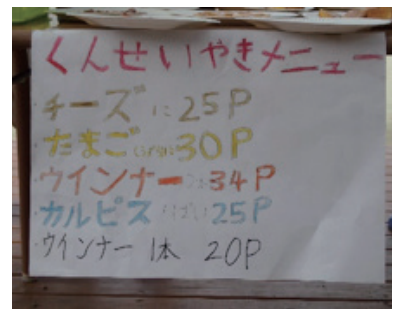 くんせいやきメニュー
チーズ 25P
たまご 30P
ウインナー 34P
カルピス 25P
ウインナー 1本 20P